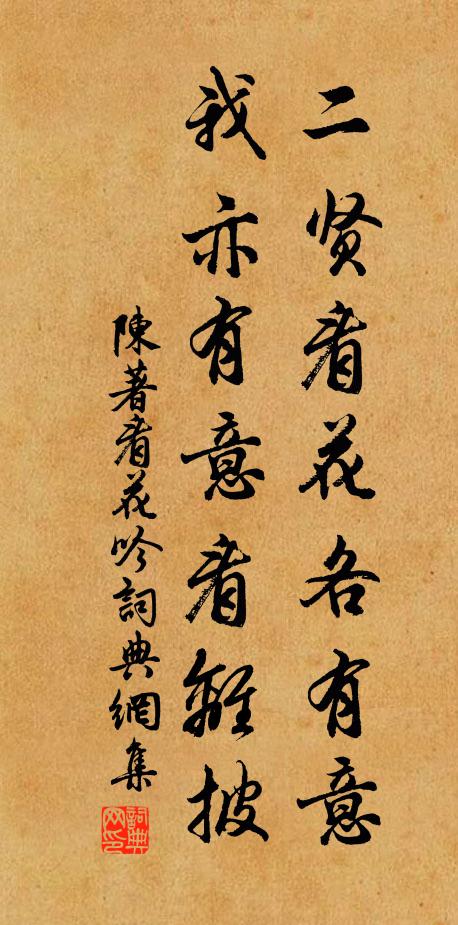 二贤看花各有意
我亦有意看離披
陳著看花吟詞典網集
詞典网印